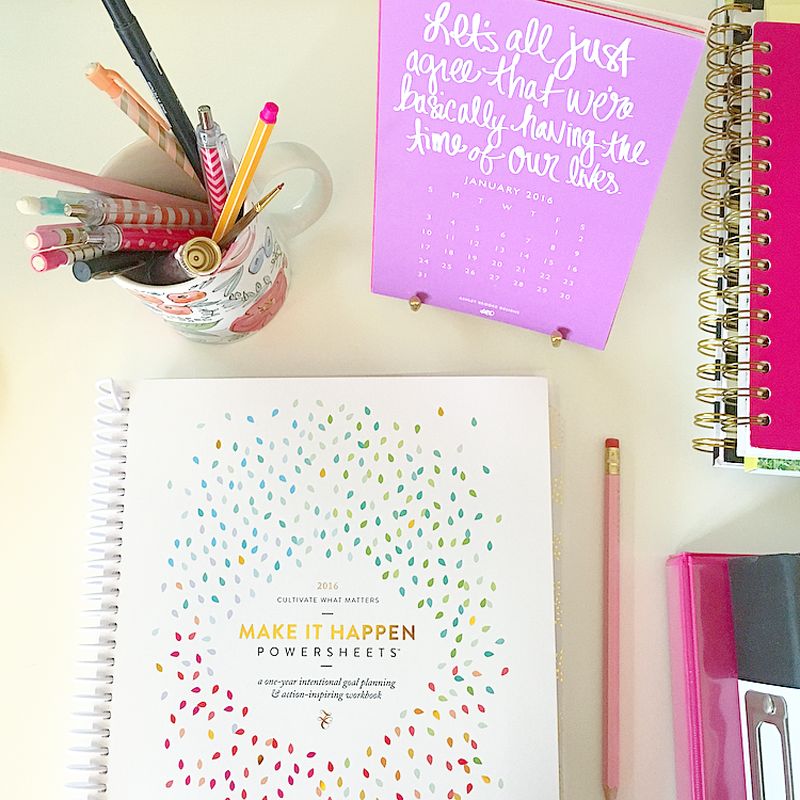 Let's all just
agree that we're
basically having the
time of our lives.
JANUARY 2016
S M T W T F S
1 2
3 4 5 6 7 8 9
10 11 12 13 14 15 16
17 18 19 20 21 22 23
24 25 26 27 28 29 30
31
2016
CULTIVATE WHAT MATTERS
MAKE IT HAPPEN
POWERSHEETS™
a one-year intentional goal planning
& action-inspiring workbook